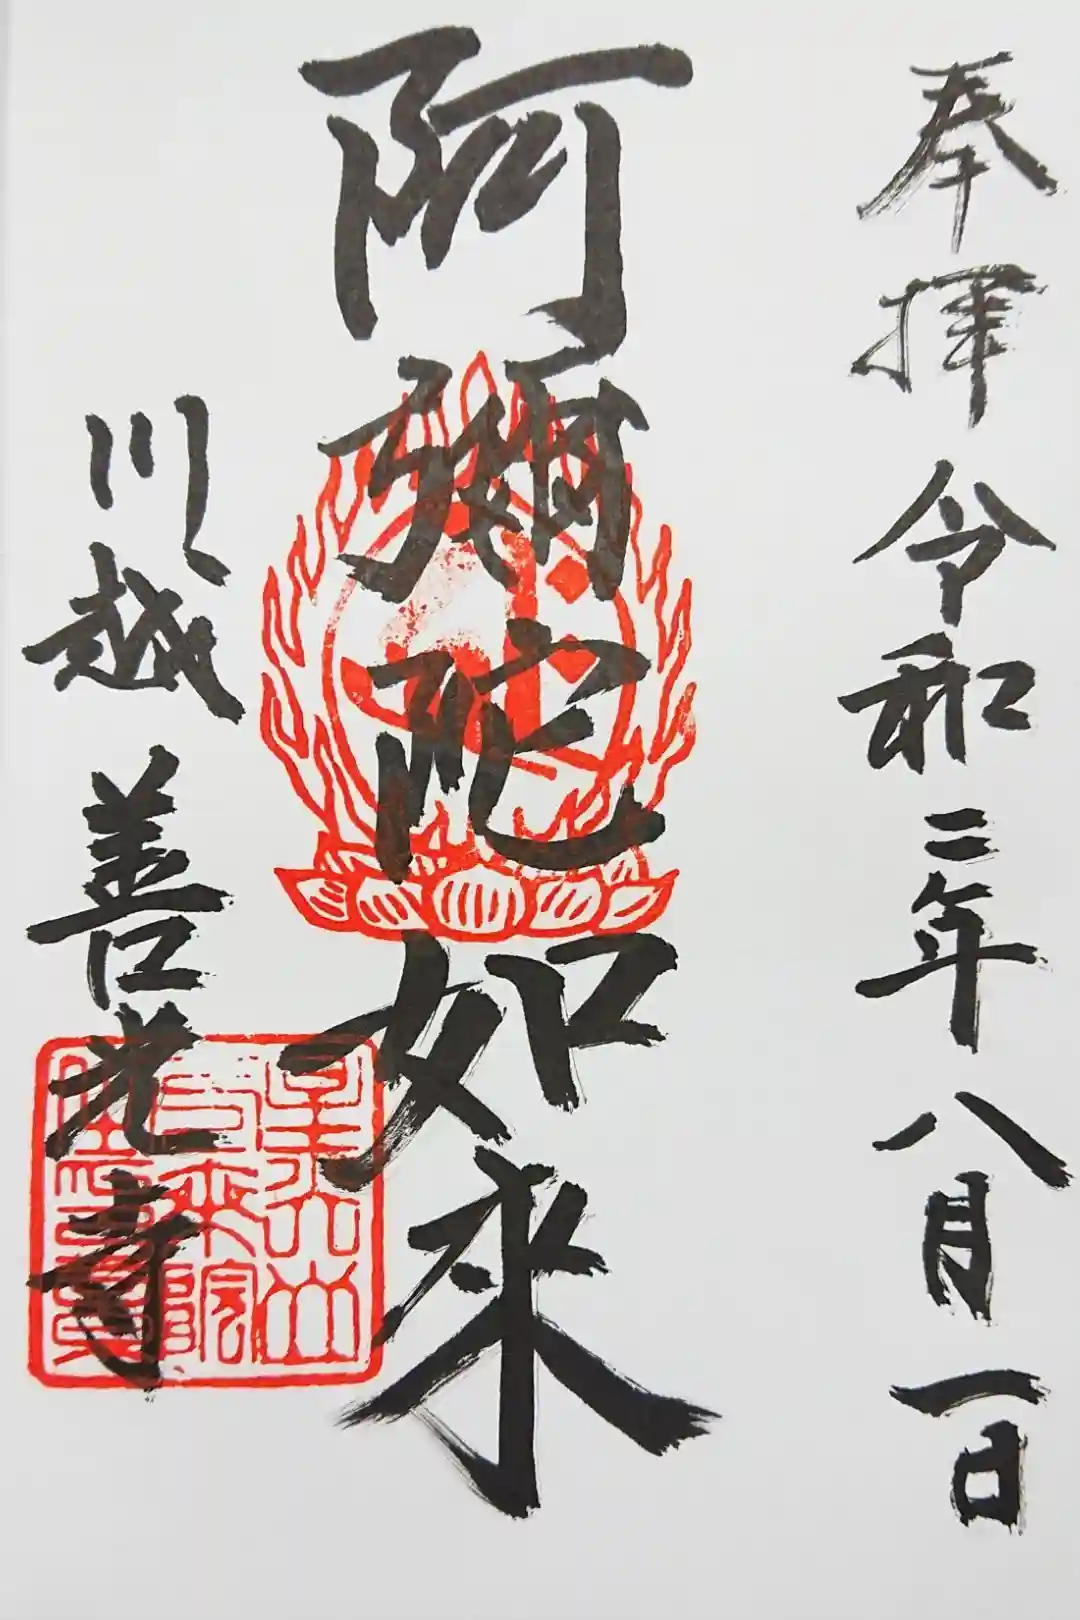 奉拝 令和二年八月一日
阿彌陀如来
川越 善光寺